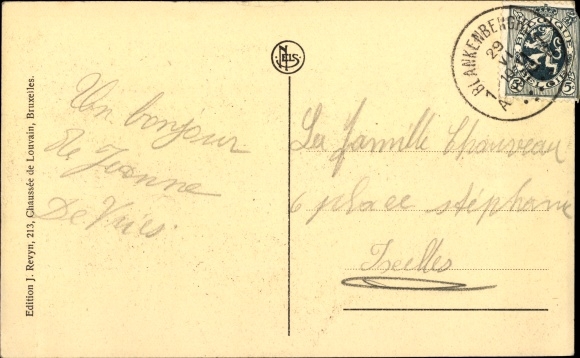 Un bonjour
de Jeanne
De Vries
Edition J. Revyn, 213, Chaussée de Louvain, Bruxelles.
NELS
La famille Chauveau
6 place stéphanie
Ixelles
BLANKENBERGHE
29
VI
A
BELGIQUE
BELGIE
5c